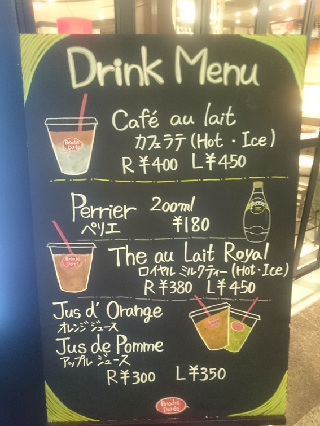 Drink Menu
Café au lait
カフェラテ (Hot・Ice)
R ¥400 L ¥450
Perrier 200ml
ペリエ ¥180
The au Lait Royal
ロイヤルミルクティー (Hot・Ice)
R ¥380 L ¥450
Jus d' Orange
オレンジジュース
Jus de Pomme
アップルジュース
R ¥300 L ¥350